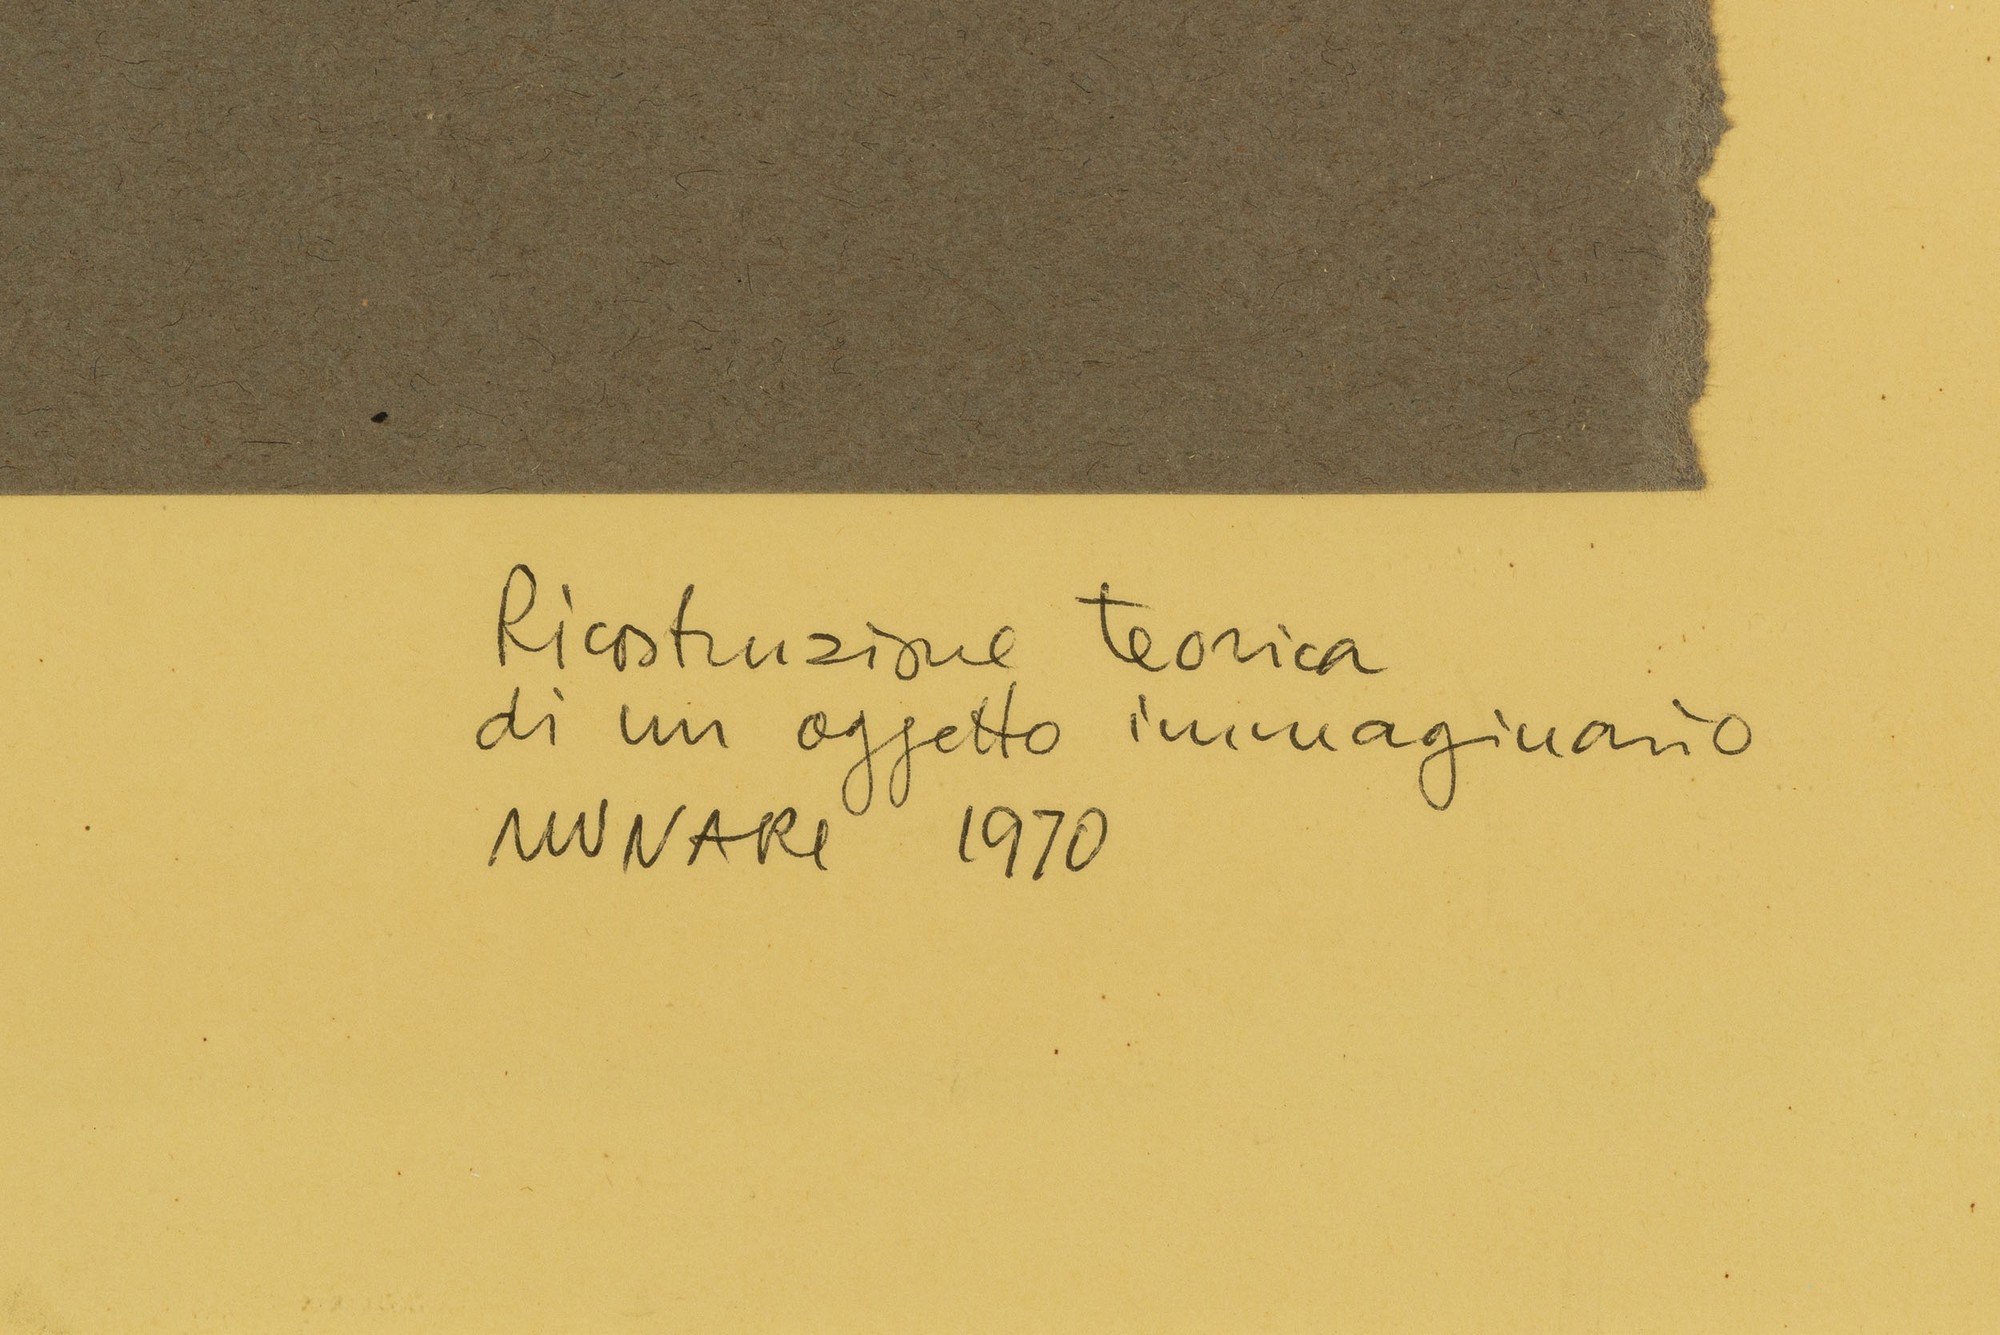 Ricostruzione teorica
di un oggetto immaginario
MUNARI 1970